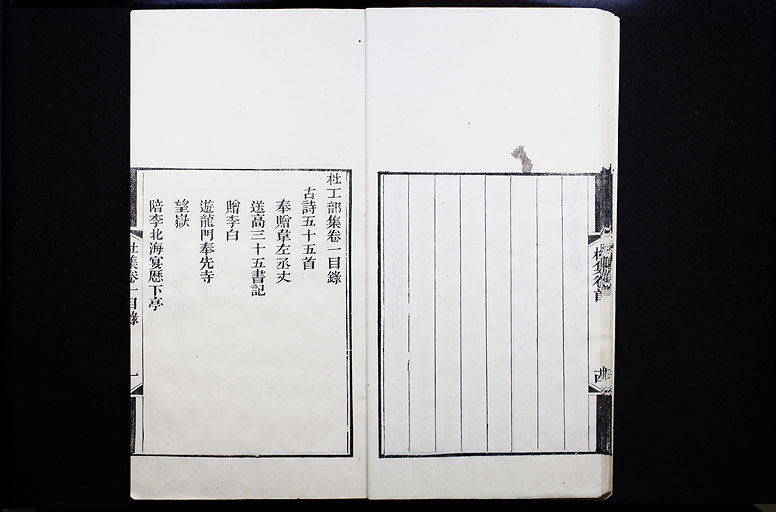 杜集卷首
杜工部集卷一目錄
古詩五十五首
奉贈韋左丞丈
送高三十五書記
贈李白
遊龍門奉先寺
望嶽
陪李北海宴歷下亭
杜集卷一目錄
一